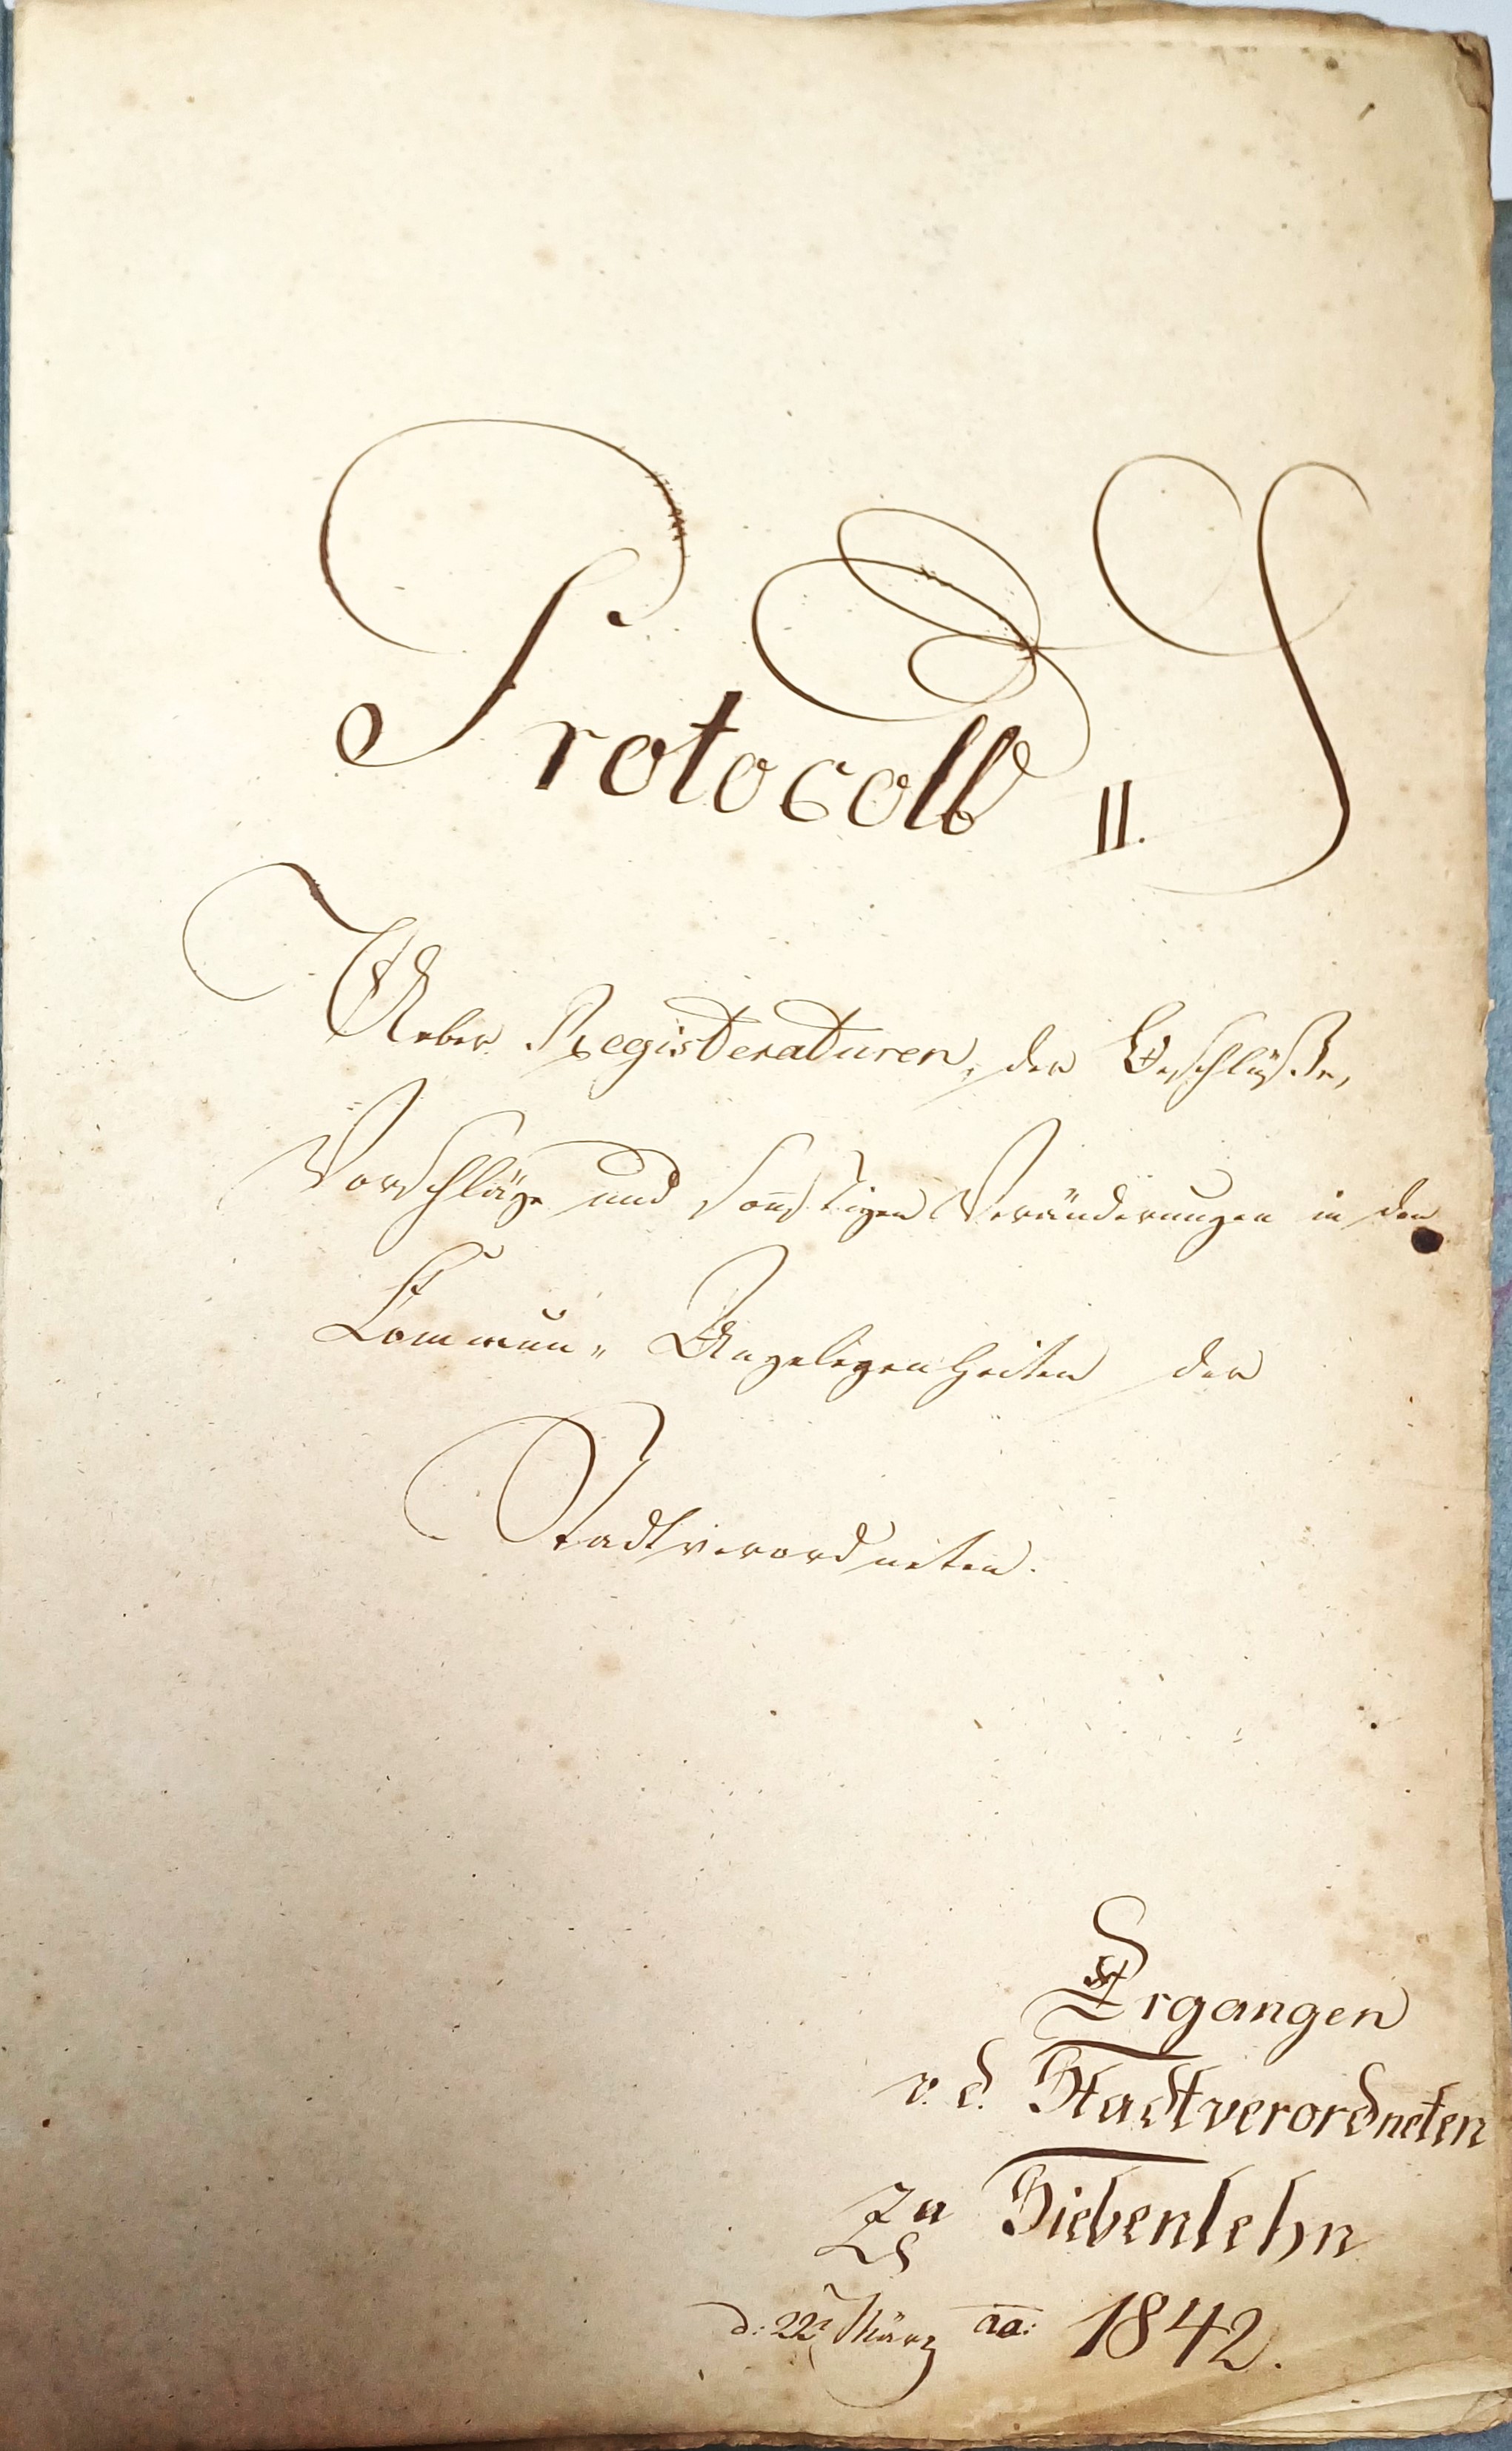 Protocoll II.
Ueber Registeraturen, der Beschlüße,
Vorschläge und sonstigen Veränderungen in den
Commun„ Angelegenheiten der
Stadtverordneten.
Ergangen
v. d. Stadtverordneten
Zu Siebenlehn
d: 22t März ao: 1842.